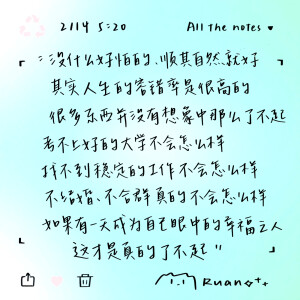 2114 5:20
All the notes ♥
"没什么好怕的、顺其自然就好
其实人生的容错率是很高的
很多东西并没有想象中那么了不起
考不上好的大学不会怎么样
找不到稳定的工作不会怎么样
不结婚、不合群真的不会怎么样
如果有一天成为自己眼中的幸福之人
这才是真的了不起"
Ruano++